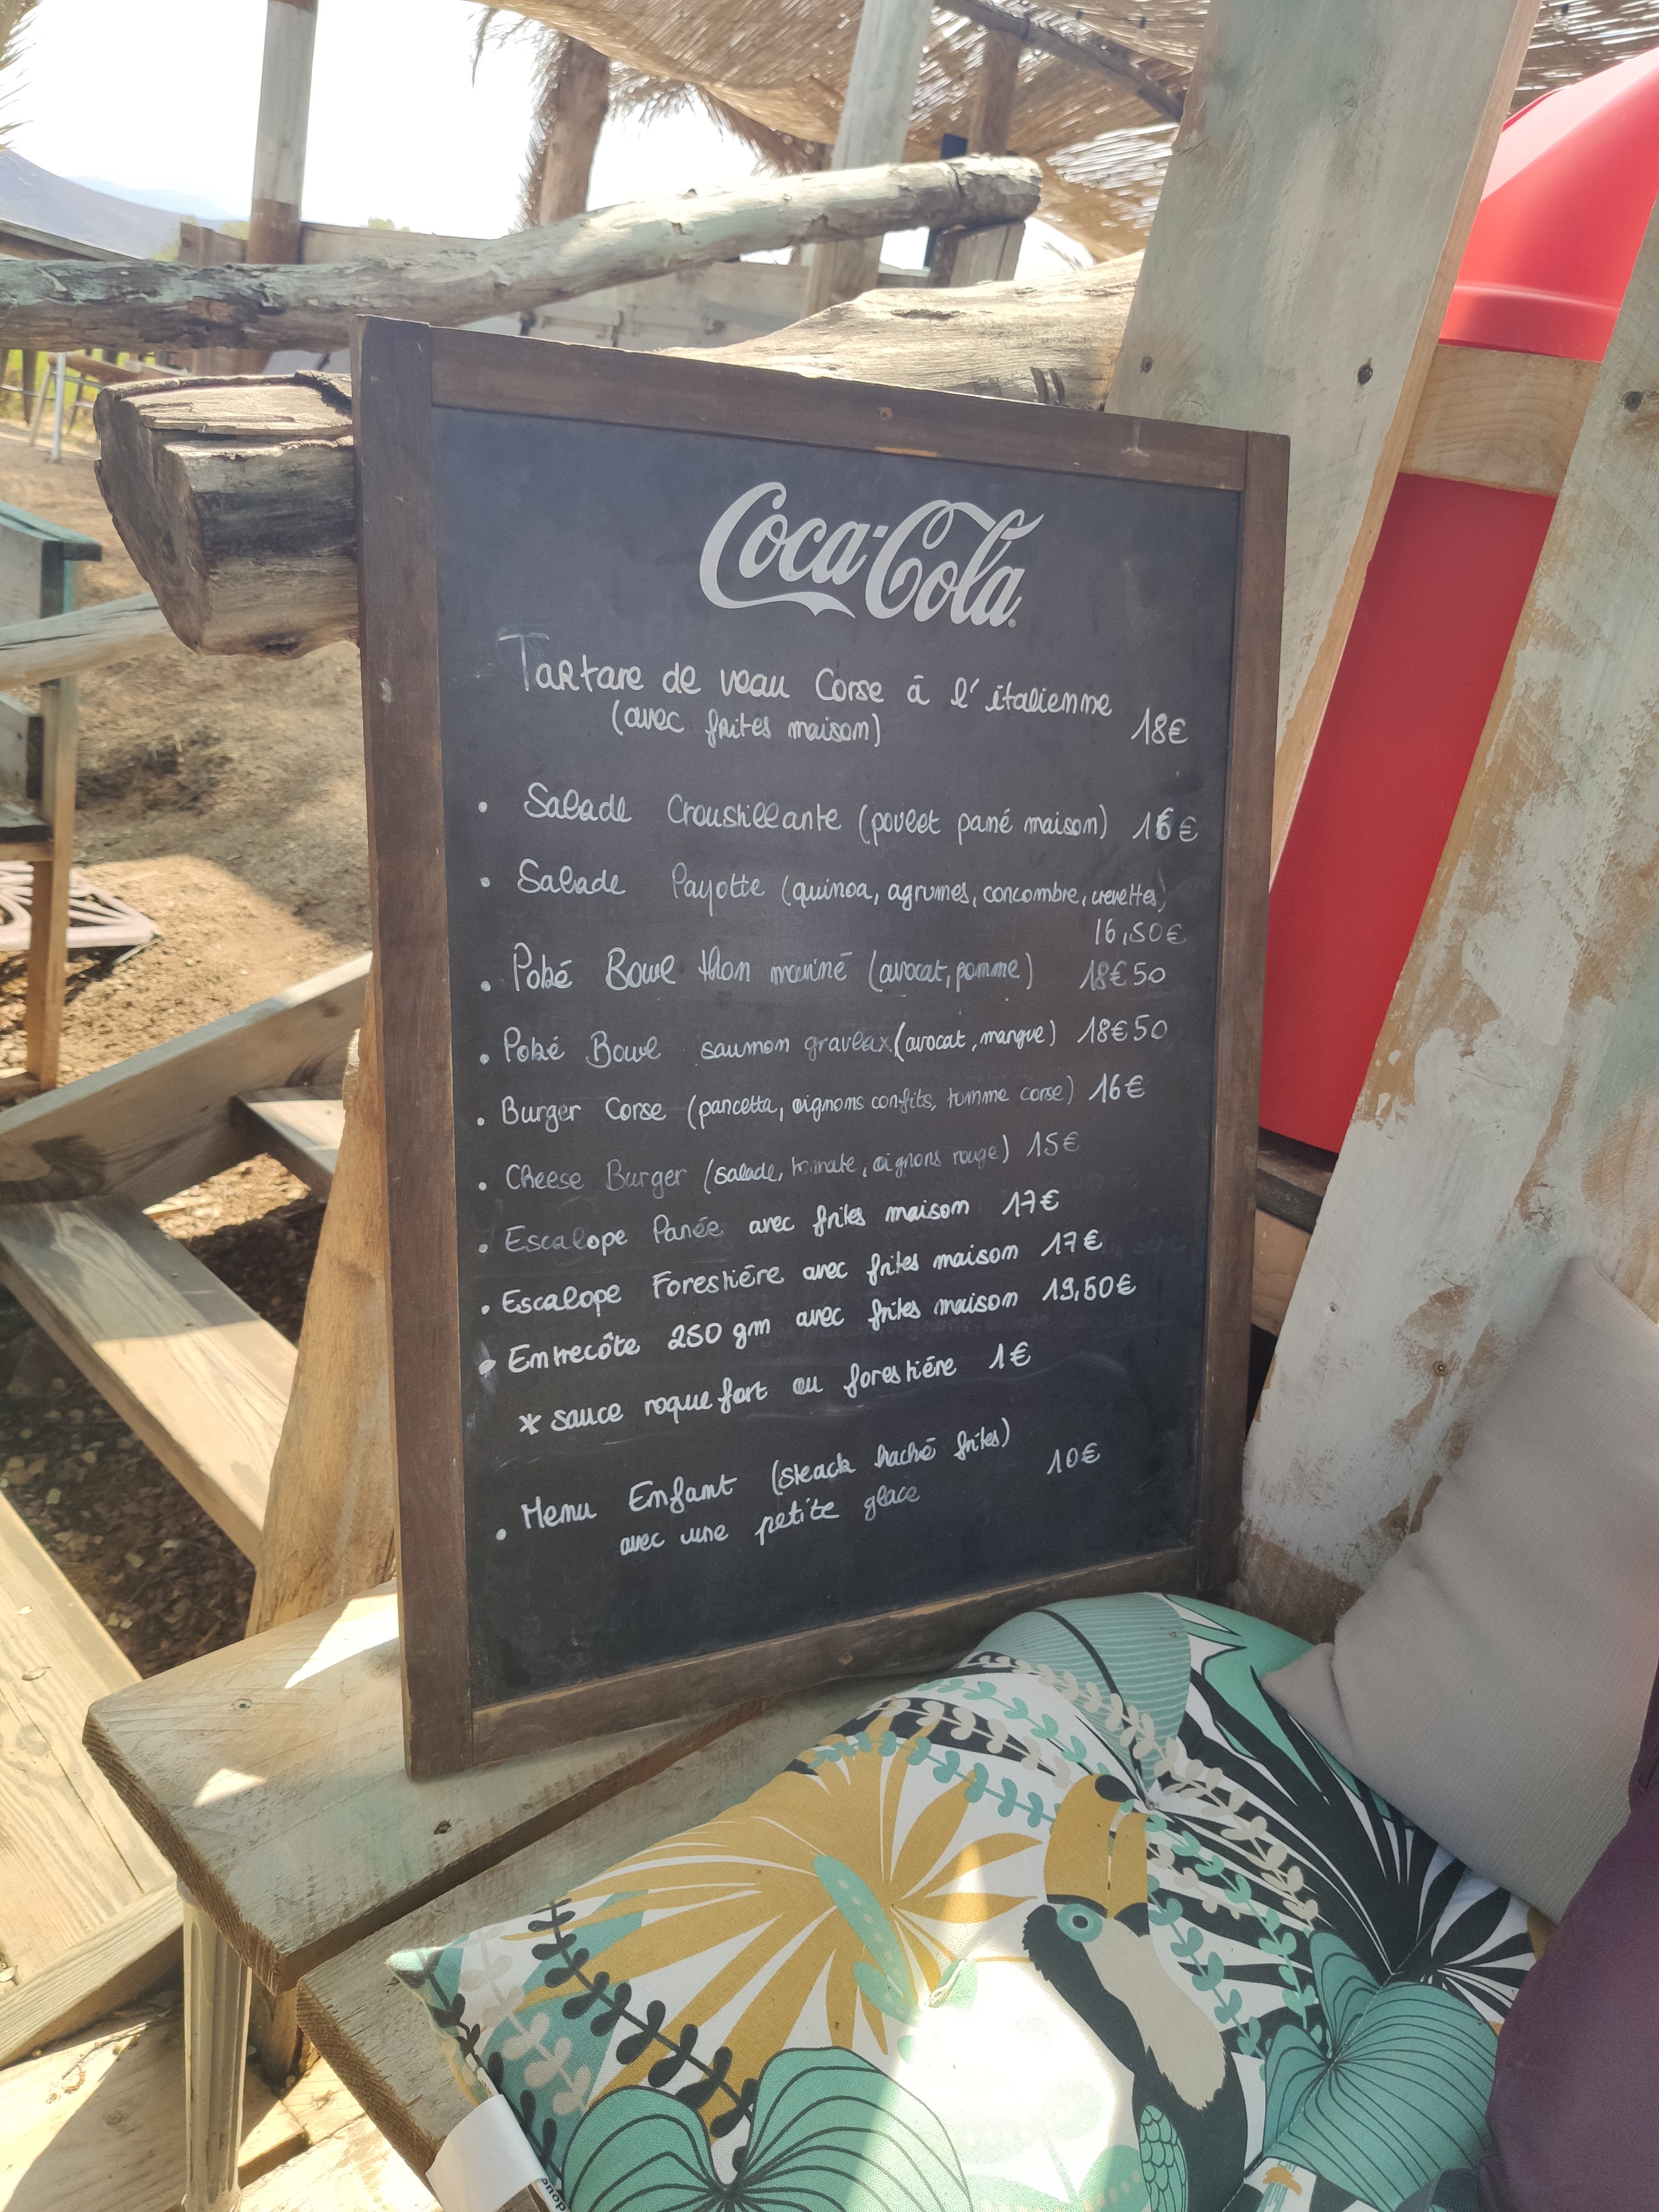 Coca-Cola
Tartare de veau Corse à l'italienne
(avec frites maison) 18€
• Salade Croustillante (poulet pané maison) 16€
• Salade Payotte (quinoa, agrumes, concombre, crevettes)
16,50€
• Poké Bowl thon mariné (avocat, pomme) 18€50
• Poké Bowl saumon gravlax (avocat, mangue) 18€50
• Burger Corse (pancetta, oignons confits, tomme corse) 16€
• Cheese Burger (salade, tomate, oignons rouge) 15€
• Escalope Panée avec frites maison 17€
• Escalope Forestière avec frites maison 17€
• Entrecôte 250 gm avec frites maison 19,50€
* sauce roquefort ou forestière 1€
• Menu Enfant (steack haché frites)
avec une petite glace 10€